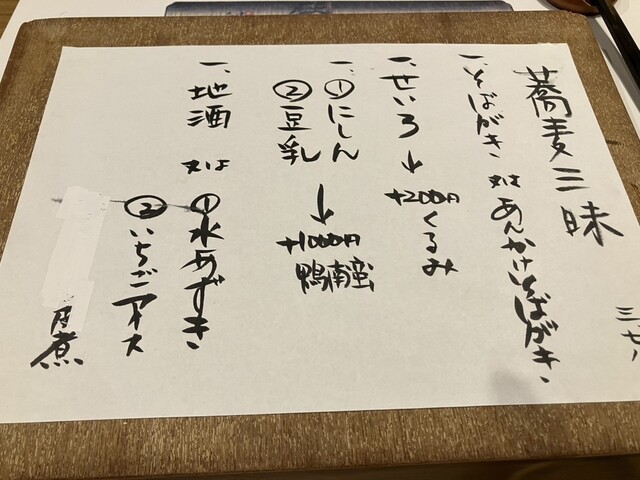 蕎麦三昧
一、そばがき 又は あんかけそばがき
一、せいろ → +200円 くるみ
一、①にしん
②豆乳 → +1000円 鴨南蛮
一、地酒 又は ①水あずき
②いちごアイス